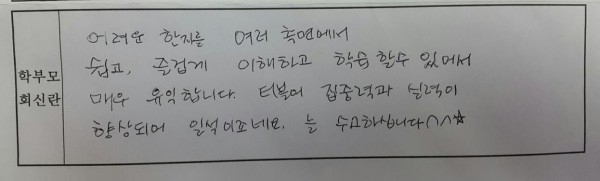 학부모
회신란
어려운 한자를 여러 측면에서
쉽고, 즐겁게 이해하고 학습 할수 있어서
매우 유익합니다. 더불어 집중력과 실력이
향상되어 일석이조네요. 늘 수고하십니다^^☆